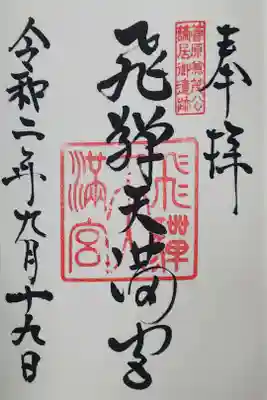 奉拝
菅原兼茂公
謫居御遺跡
飛騨天満宮
飛騨
天
満宮
令和二年九月十九日